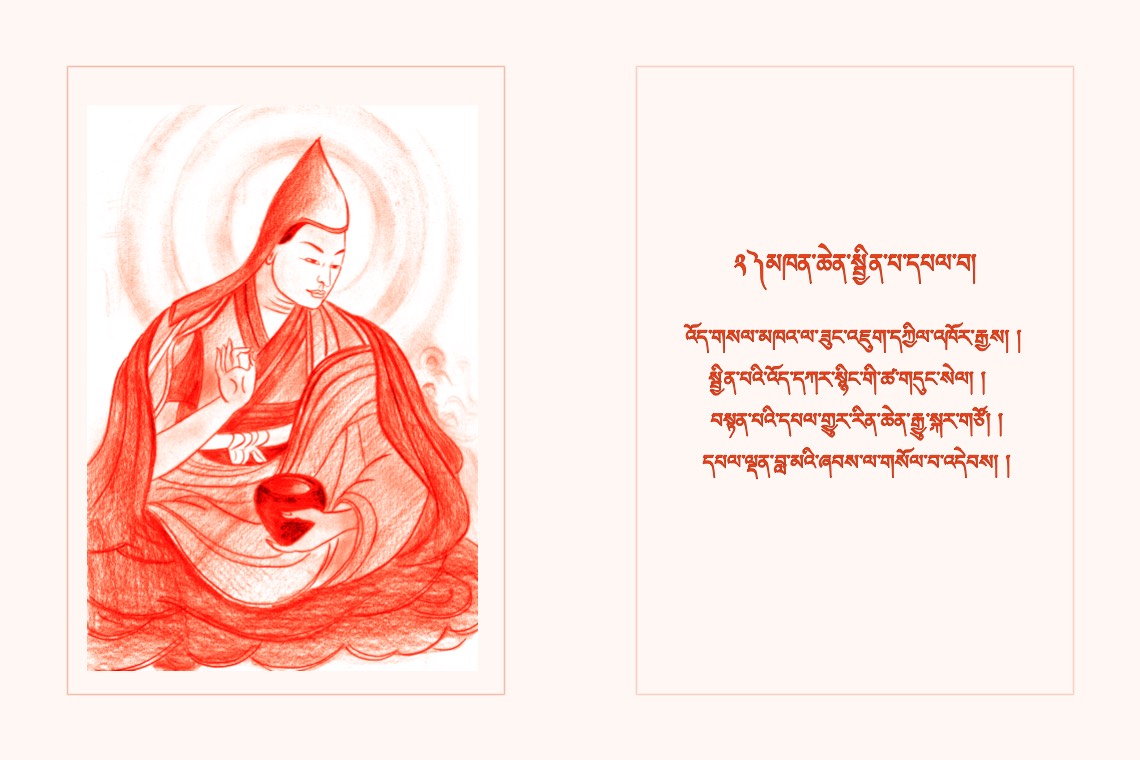 ༢༽མཁན་ཆེན་སྦྱིན་པ་དཔལ་བ།
འོད་གསལ་མཁའ་ལ་ཟུང་འཇུག་དཀྱིལ་འཁོར་རྒྱས། །
སྦྱིན་པའི་འོད་དཀར་སྙིང་གི་ཚ་གདུང་སེལ། །
བསྟན་པའི་དཔལ་གྱུར་རིན་ཆེན་རྒྱུ་སྐར་གཙོ། །
དཔལ་ལྡན་བླ་མའི་ཞབས་ལ་གསོལ་བ་འདེབས། །